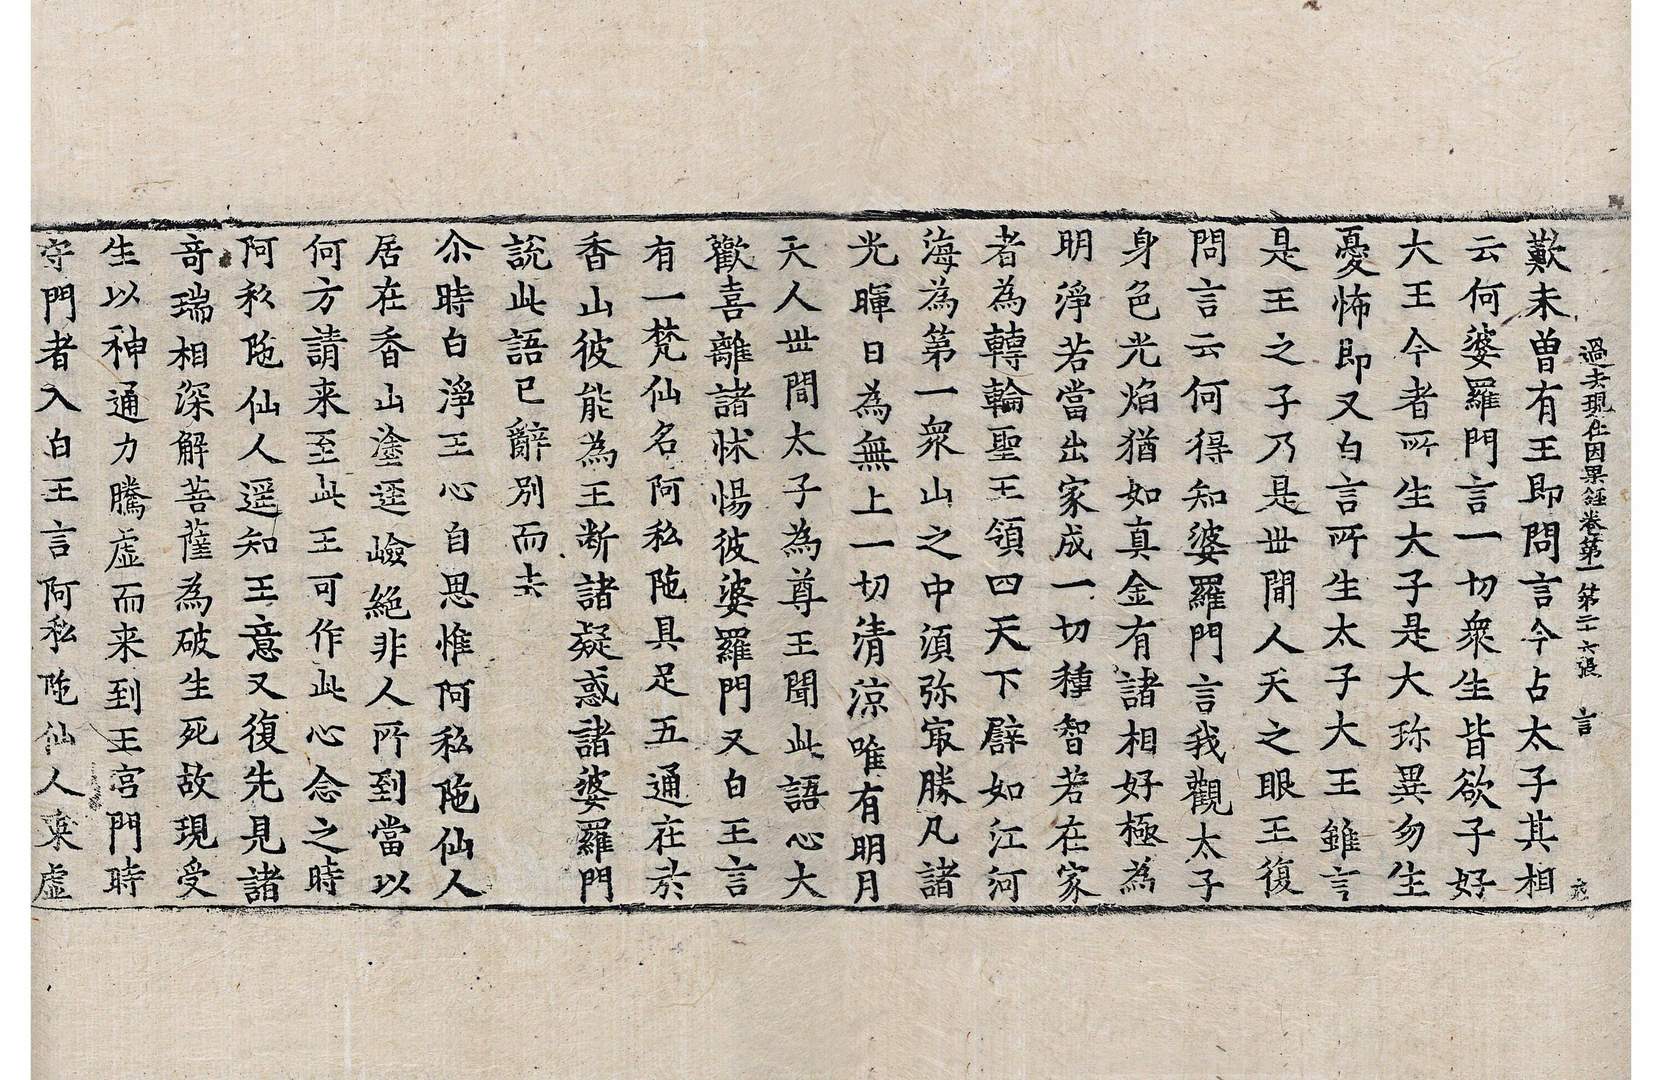 過去現在因果經卷第一　第二十六張　言
歎未曽有王即問言今占太子其相
云何婆羅門言一切衆生皆欲子好
大王今者所生大子是大珎異勿生
憂怖即又白言所生太子大王雖言
是王之子乃是世間人天之眼王復
問言云何得知婆羅門言我觀太子
身色光焰猶如真金有諸相好極為
明淨若當出家成一切種智若在家
者為轉輪聖王領四天下譬如江河
海為第一衆山之中湏弥㝡勝凡諸
光暉日為無上一切清涼唯有明月
天人世間太子為尊王聞此語心大
歡喜離諸怵惕彼婆羅門又白王言
有一梵仙名阿私陁具足五通在於
香山彼能為王断諸疑惑諸婆羅門
說此語已辭別而去
尒時白淨王心自思惟阿私陁仙人
居在香山塗逕嶮絶非人所到當以
何方請来至此王可作此心念之時
阿私陁仙人遥知王意又復先見諸
竒瑞相深解菩薩為破生死故現受
生以神通力騰虚而来到王宫門時
守門者入白王言阿私陁仙人乗虚